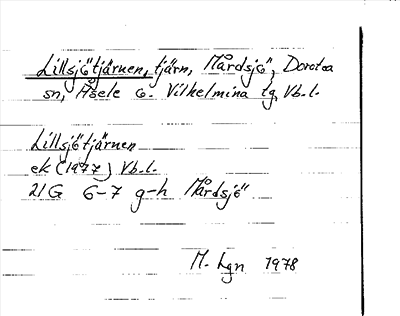 Lillsjötjärnen, tjärn, Mårdsjö, Dorotea
sn, Åsele o. Vilhelmina tg, Vb.l.
Lillsjötjärnen
ek (1977) Vb.l.
21G 6-7 g-h Mårdsjö
M. Lgn 1978